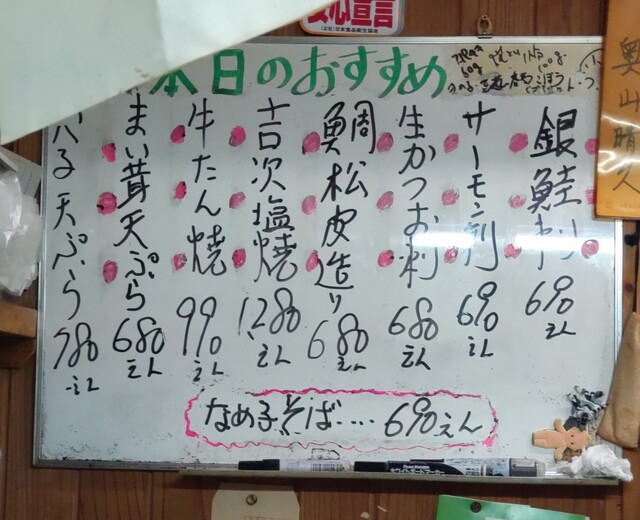 安心宣言
本日のおすすめ
銀鮭刺 690えん
サーモン刺 690えん
生かつお刺 680えん
鯛松皮造り 680えん
吉次塩焼 1280えん
牛たん焼 990えん
まい茸天ぷら 680えん
天ぷら 780えん
なめ子そば.... 690えん
奥山晴久
ホワイトボードマーカー